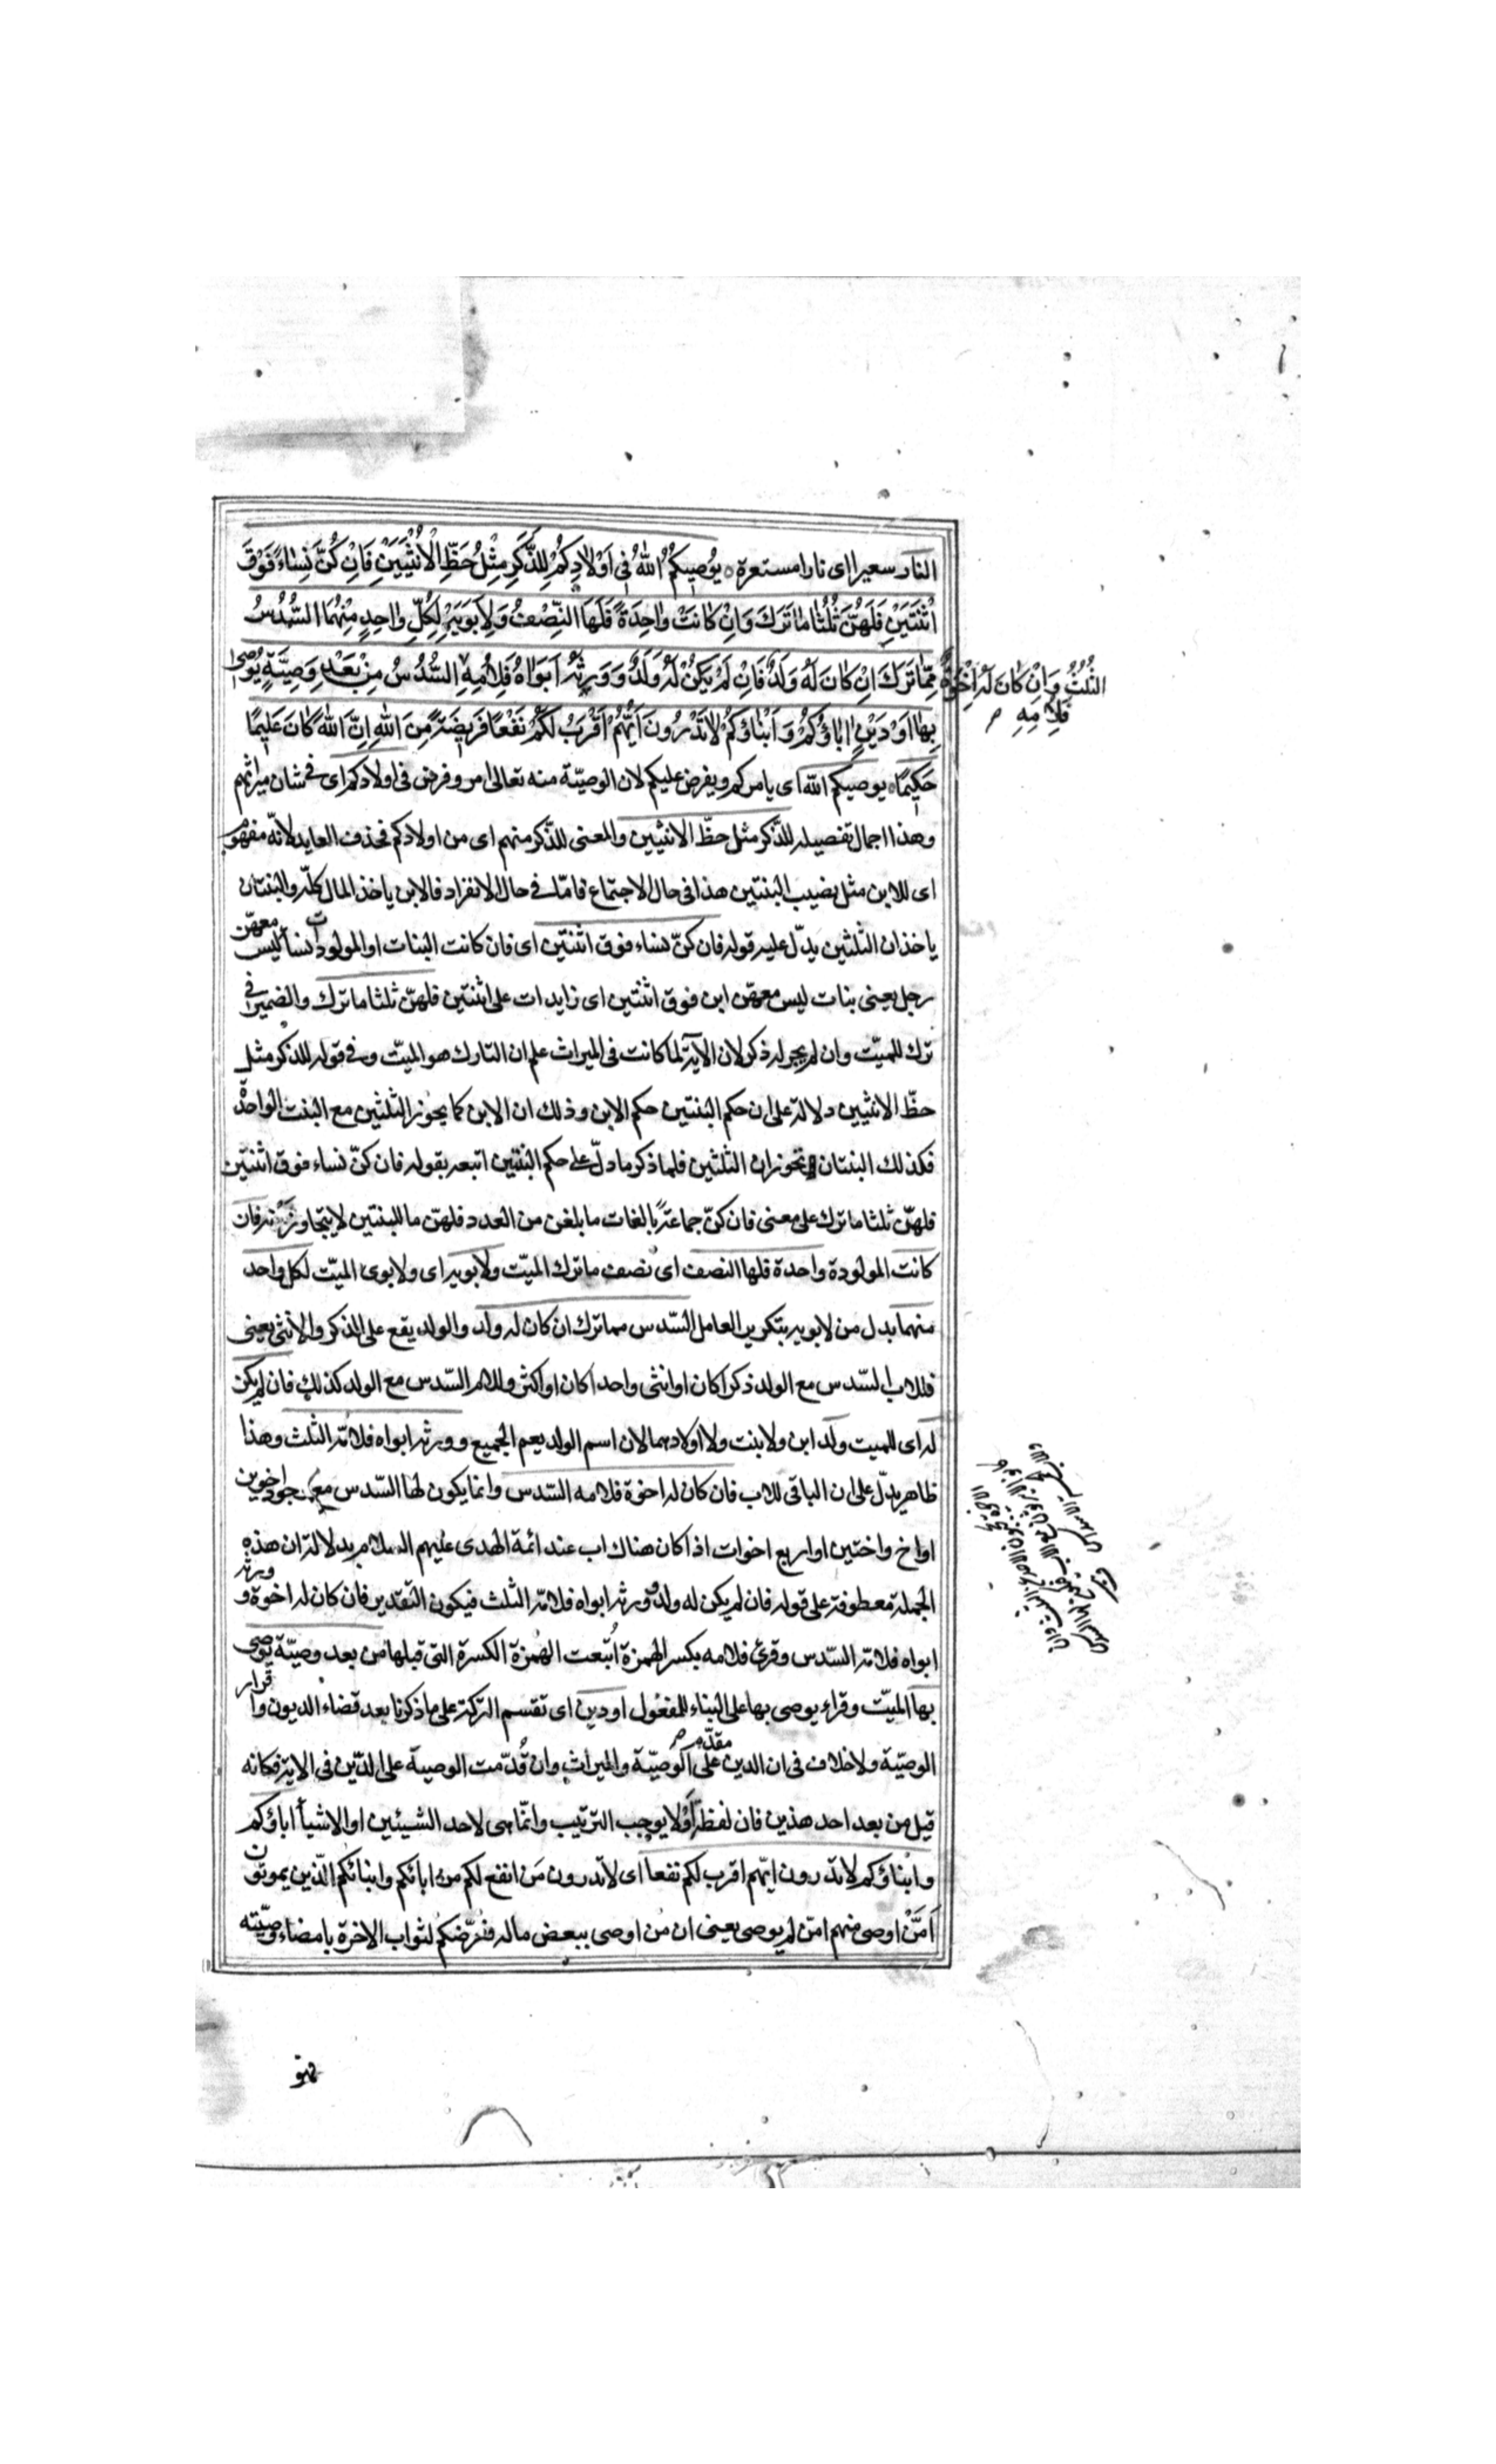 النار سعيرا اى نارا مستعرة ۰ يُوصِيكُمُ اللهُ فِى اَوْلَادِكُمْ لِلذَّكَرِ مِثْلُ حَظِّ الْاُنْثَيَيْنِ فَاِنْ كُنَّ نِسَاءً فَوْقَ
اثْنَتَيْنِ فَلَهُنَّ ثُلُثَا مَا تَرَكَ وَاِنْ كَانَتْ وَاحِدَةً فَلَهَا النِّصْفُ وَلِاَبَوَيْهِ لِكُلِّ وَاحِدٍ مِنْهُمَا السُّدُسُ
مِمَّا تَرَكَ اِنْ كَانَ لَهُ وَلَدٌ فَاِنْ لَمْ يَكُنْ لَهُ وَلَدٌ وَوَرِثَهُ اَبَوَاهُ فَلِاُمِّهِ السُّدُسُ مِنْ بَعْدِ وَصِيَّةٍ يُوصِى
الثُّلُثُ وَاِنْ كَانَ لَهُ اِخْوَةٌ
فَلِاُمِّهِ
بِهَا اَوْ دَيْنٍ اٰبَاؤُكُمْ وَاَبْنَاؤُكُمْ لَا تَدْرُونَ اَيُّهُمْ اَقْرَبُ لَكُمْ نَفْعًا فَرِيضَةً مِنَ اللهِ اِنَّ اللهَ كَانَ عَلِيمًا
حَكِيمًا ۰ يوصيكم الله اى يامركم ويفرض عليكم لان الوصيّة منه تعالى امر وفرض فى اولادكم اى فى شان ميراثهم
وهذا اجمال تفصيله للذّكر مثل حظّ الانثيين والمعنى للذّكر منهم اى من اولادكم فحذف العايد لانّه مفهوم
اى للابن مثل نصيب البنتين هذا فى حال الاجتماع فامّا فى حال الانفراد فالابن ياخذ المال كلّه والبنتان
ياخذان الثّلثين يدّل عليه قوله فان كنّ نساء فوق اثنتين اى فان كانت البنات او المولودات نساء ليس معهنّ
رجل يعنى بنات ليس معهنّ ابن فوق اثنتين اى زايدات على اثنتين فلهنّ ثلثا ما ترك والضمير فى
ترك للميّت وان لم يجر له ذكر لان الآية لما كانت فى الميراث علم ان التارك هو الميّت وفى قوله للذكر مثل
حظّ الانثيين دلالة على ان حكم البنتين حكم الابن وذلك ان الابن كما يحوز الثّلثين مع البنت الواحدة
فكذلك البنتان تحوزان الثلثين فلما ذكر ما دلّ على حكم البنتين اتبعه بقوله فان كنّ نساء فوق اثنتين
فلهنّ ثلثا ما ترك على معنى فان كنّ جماعة بالغات ما بلغن من العدد فلهنّ ما للبنتين لا يتجاوزنه فان
كانت المولودة واحدة فلها النصف اى نصف ما ترك الميّت ولابويه اى ولابوى الميّت لكل واحد
منهما بدل من لابويه بتكرير العامل السّدس مما ترك ان كان له ولد والولد يقع على الذكر والانثى يعنى
فللاب السّدس مع الولد ذكرا كان او انثى واحدا كان او اكثر وللام السّدس مع الولد كذلك فان لم يكن
له اى للميت ولد ابن ولا بنت ولا اولادهما لان اسم الولد يعم الجميع وورثه ابواه فلامّه الثلث وهذا
ظاهر يدّل على ان الباقى للاب فان كان له اخوة فلامه السّدس وانما يكون لها السّدس مع وجود اخوين
او اخ واختين او اربع اخوات اذا كان هناك اب عند ائمة الهدى عليهم السلام بدلالة ان هذه
الجملة معطوفة على قوله فان لم يكن له ولد وورثه ابواه فلامّه الثلث فيكون التقدير فان كان له اخوة وورثه
ابواه فلامّه السّدس وقرئ فلامه بكسر الهمزة اُتّبعت الهمزة الكسرة التى قبلها من بعد وصيّة يوصى
بها الميّت وقراء يوصى بها على البناء للمفعول او دين اى تقسم التركة على ما ذكرنا بعد قضاء الديون واقرار
الوصيّة ولا خلاف فى ان الدين مقدّم على الوصيّة والميراث وان قُدّمت الوصية على الدّين فى الاية فكانه
قيل من بعد احد هذين فان لفظة اَوْ لا يوجب الترتيب وانّما هى لاحد الشيئين او الاشياء اباؤكم
وابناؤكم لا تدرون ايّهم اقرب لكم نفعا اى لا تدرون مَن انفع لكم من ابائكم وابنائكم الّذين يموتون
اَمَّنْ اوصى منهم امّن لم يوصى يعنى ان من اوصى ببعض ماله فعرّضكم لثواب الاخرة بامضاء وصيّته
فهو